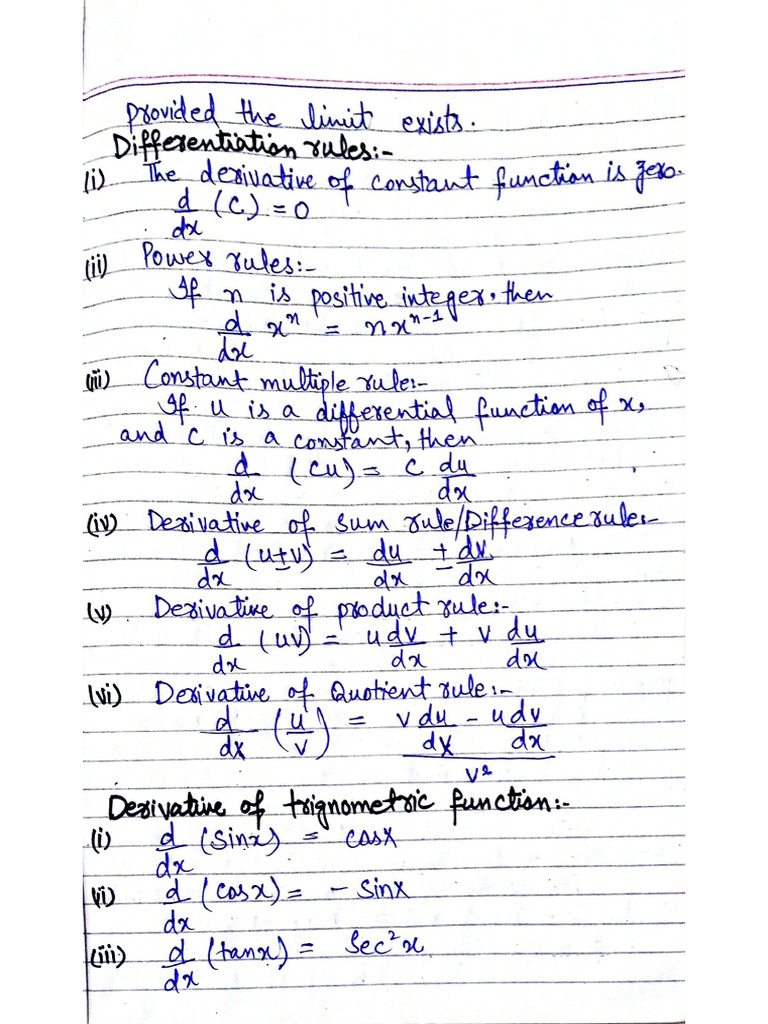 provided the limit exists.
Differentiation rules:-
(i) The derivative of constant function is zero.
d/dx (C) = 0
(ii) Power rules:-
If n is positive integer, then
d/dx xⁿ = nxⁿ⁻¹
(iii) Constant multiple rule:-
If u is a differential function of x,
and c is a constant, then
d/dx (cu) = c du/dx
(iv) Derivative of sum rule/Difference rule:-
d/dx (u±v) = du/dx ± dv/dx
(v) Derivative of product rule:-
d/dx (uv) = u dv/dx + v du/dx
(vi) Derivative of Quotient rule:-
d/dx (u/v) = (v du/dx - u dv/dx)/v²
Derivative of trignometric function:-
(i) d/dx (Sinx) = cosx
(ii) d/dx (cosx) = - Sinx
(iii) d/dx (tanx) = Sec²x